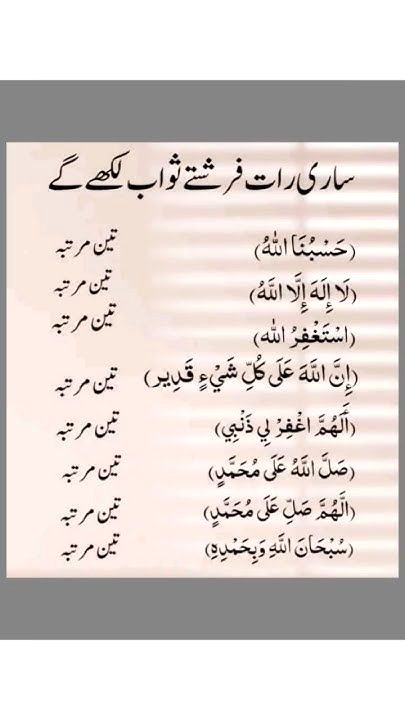 ساری رات فرشتے ثواب لکھے گے
(حَسْبُنَا اللهُ) تین مرتبہ
(لَا إِلَهَ إِلَّا اللَّهُ) تین مرتبہ
(اسْتَغْفِرُ الله) تین مرتبہ
(إِنَّ اللَّهَ عَلَى كُلِّ شَيْءٍ قَدِير) تین مرتبہ
(اَلَّهُمَّ اغْفِرْ لِي ذَنْبِي) تین مرتبہ
(صَلَّ اللَّهُ عَلَى مُحَمَّدٍ) تین مرتبہ
(الَّهُمَّ صَلِّ عَلَى مُحَمَّدٍ) تین مرتبہ
(سُبْحَانَ اللَّهِ وَبِحَمْدِهِ) تین مرتبہ